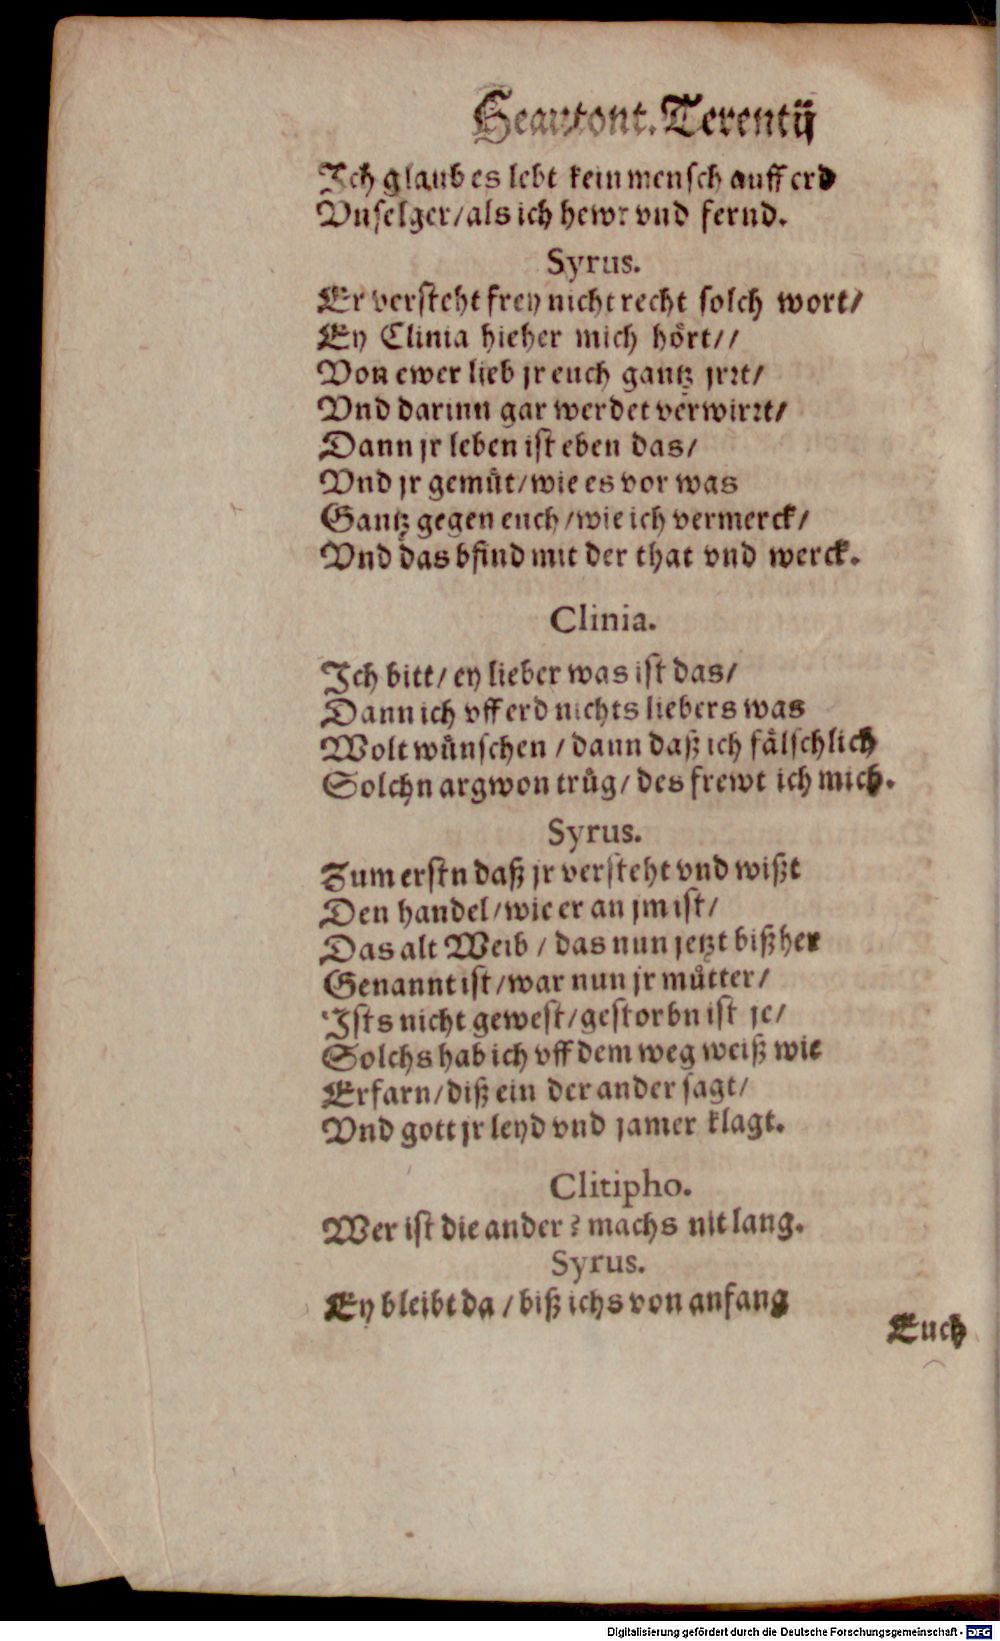 Heavtont. Terentij
Ich glaub es lebt kein mensch auff erd
Vnselger/als ich hewr vnd fernd.
Syrus.
Er versteht frey nicht recht solch wort/
Ey Clinia hieher mich hoͤrt//
Von ewer lieb jr euch gantz jrꝛt/
Vnd darinn gar werdet verwirꝛt/
Dann jr leben ist eben das/
Vnd jr gemuͤt/wie es vor was
Gantz gegen euch/wie ich vermerck/
Vnd das bfind mit der that vnd werck.
Clinia.
Ich bitt/ ey lieber was ist das/
Dann ich vff erd nichts liebers was
Wolt wuͤnschen / dann daß ich faͤlschlich
Solchn argwon truͤg/ des frewt ich mich.
Syrus.
Zum erstn daß jr versteht vnd wißt
Den handel/wie er an jm ist/
Das alt Weib / das nun jetzt bißher
Genannt ist/war nun jr muͤtter/
Ists nicht gewest/gestorbn ist je/
Solchs hab ich vff dem weg weiß wie
Erfarn/diß ein der ander sagt/
Vnd gott jr leyd vnd jamer klagt.
Clitipho.
Wer ist die ander? machs nit lang.
Syrus.
Ey bleibt da / biß ichs von anfang
Euch
Digitalisierung gefördert durch die Deutsche Forschungsgemeinschaft - DFG